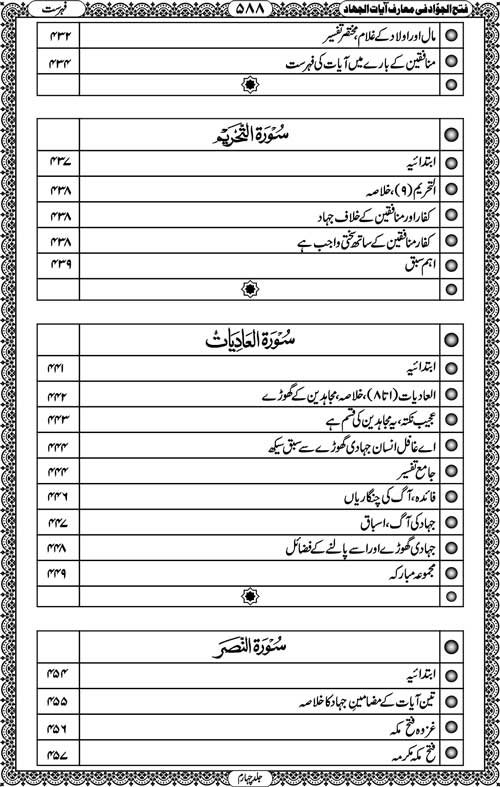 فتح الجوّاد فی معارف آیات الجهاد ۵۸۸ فہرست
مال اور اولاد کے غلام، مختصر تفسیر ۴۳۲
منافقین کے بارے میں آیات کی فہرست ۴۳۴
سُوْرَةُ التَّحْرِيْم
ابتدائیہ ۴۳۷
التحریم (۹)، خلاصہ ۴۳۸
کفار اور منافقین کے خلاف جہاد ۴۳۸
کفار منافقین کے ساتھ سختی واجب ہے ۴۳۸
اہم سبق ۴۳۹
سُوْرَةُ العَادِيَاتُ
ابتدائیہ ۴۴۱
العادیات (۱تا۸)، خلاصہ، مجاہدین کے گھوڑے ۴۴۲
عجیب نکتہ، یہ مجاہدین کی قسم ہے ۴۴۳
اے غافل انسان جہادی گھوڑے سے سبق سیکھ ۴۴۴
جامع تفسیر ۴۴۴
فائدہ، آگ کی چنگاریاں ۴۴۶
جہاد کی آگ، اسباق ۴۴۷
جہادی گھوڑے اور اسے پالنے کے فضائل ۴۴۸
مجموعہ مبارکہ ۴۴۹
سُوْرَةُ النَّصَر
ابتدائیہ ۴۵۴
تین آیات کے مضامین جہاد کا خلاصہ ۴۵۵
غزوہ فتح مکہ ۴۵۶
فتح مکہ مکرمہ ۴۵۷
جلد چہارم